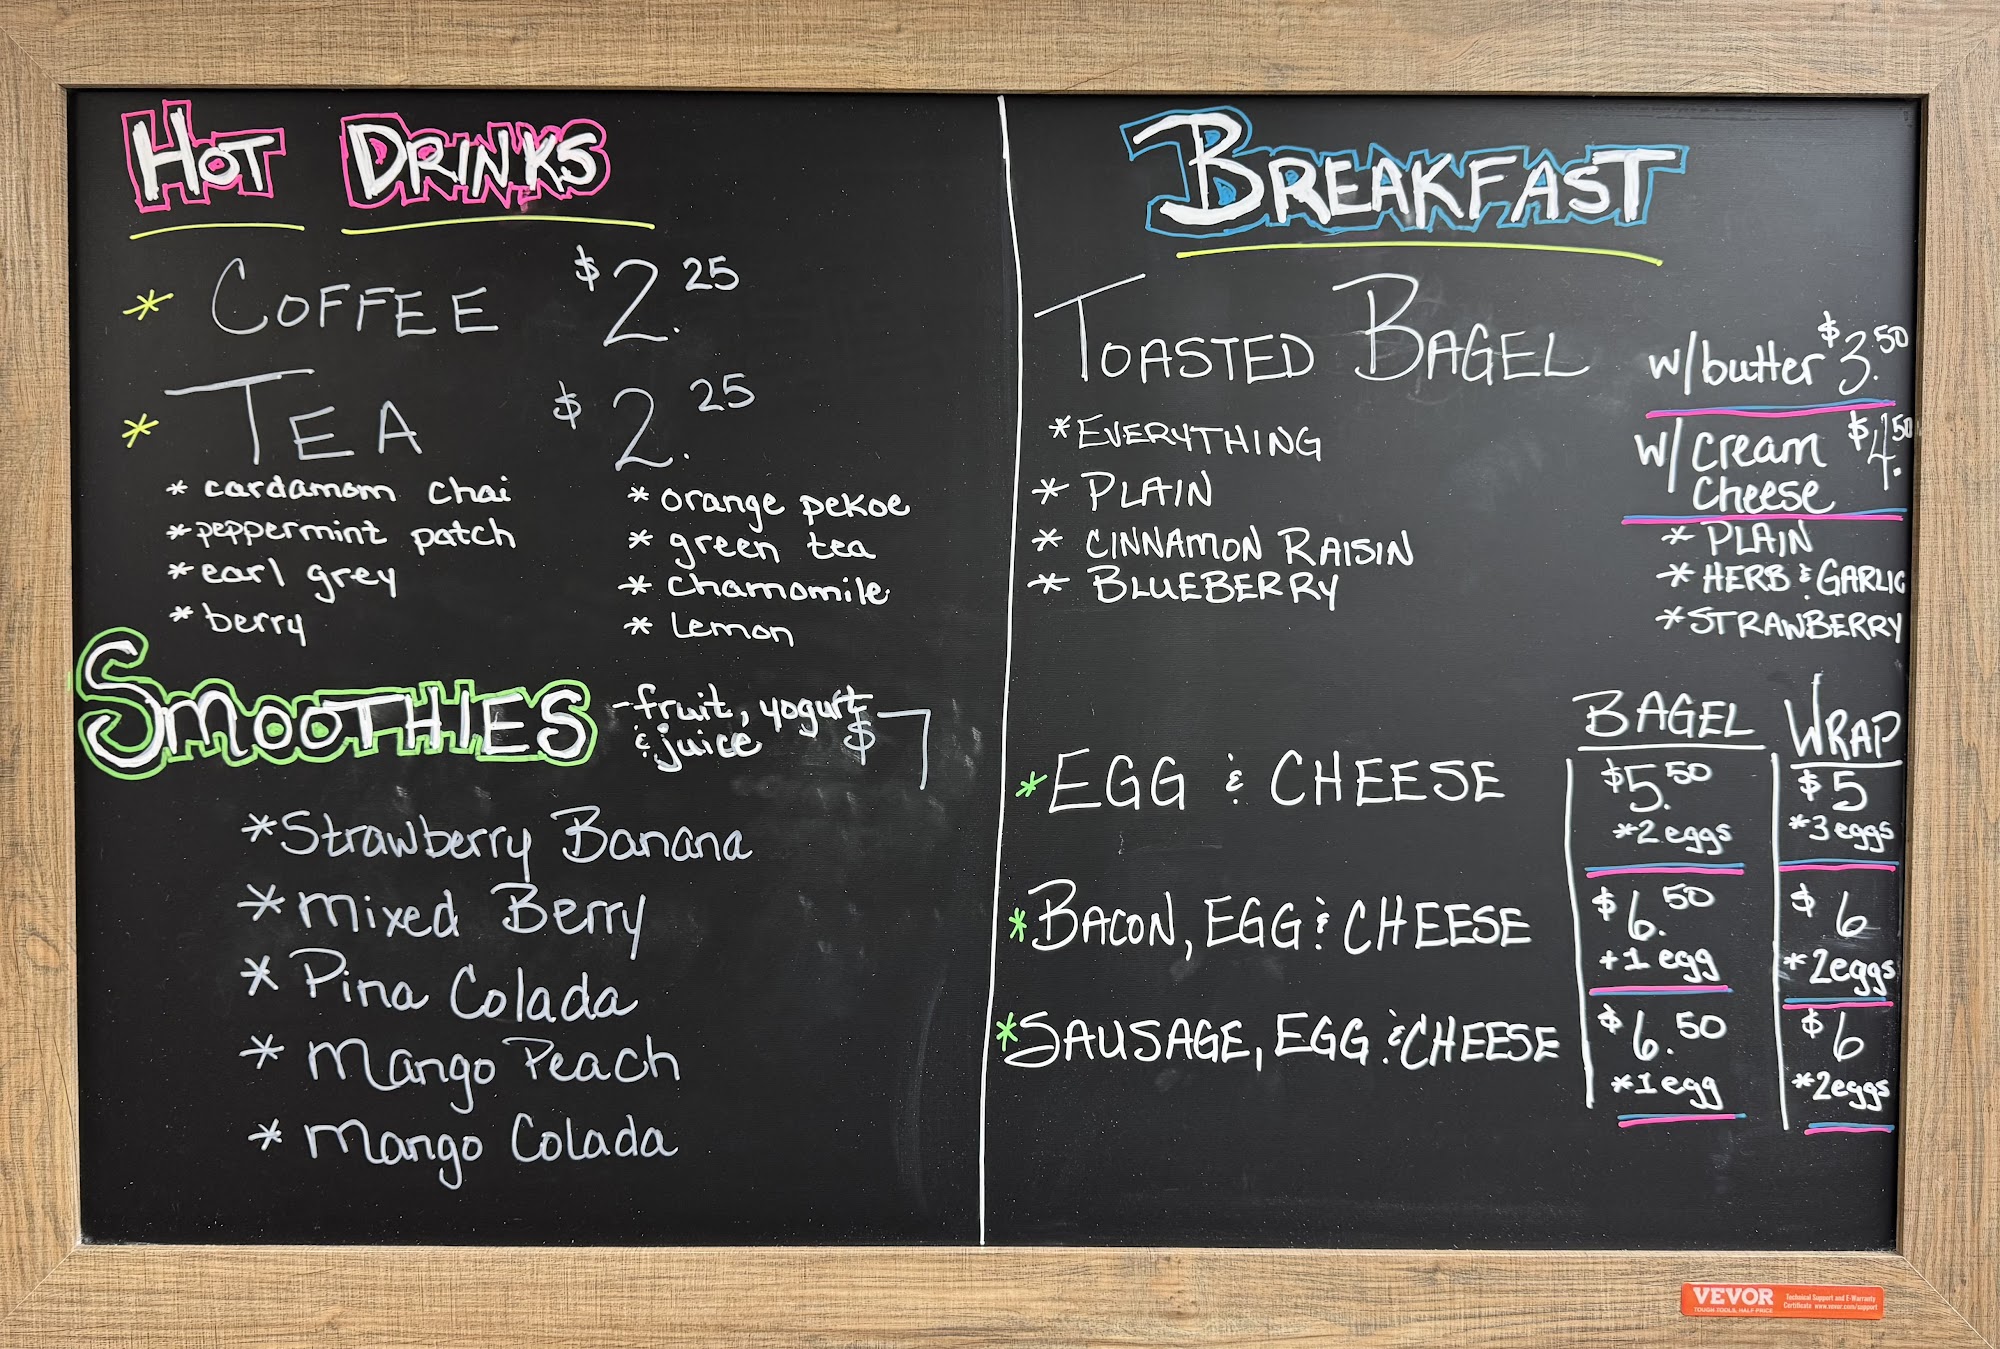 HOT DRINKS
* COFFEE $2.25
* TEA $2.25
* cardamom chai
* peppermint patch
* earl grey
* berry
* orange pekoe
* green tea
* chamomile
* Lemon
SMOOTHIES
- fruit, yogurt
& juice $7
* Strawberry Banana
* Mixed Berry
* Pina Colada
* Mango Peach
* Mango Colada
BREAKFAST
TOASTED BAGEL
* EVERYTHING
* PLAIN
* CINNAMON RAISIN
* BLUEBERRY
w/butter $3.50
w/ cream $4.50
cheese
* PLAIN
* HERB & GARLIC
* STRAWBERRY
BAGEL WRAP
* EGG & CHEESE $5.50 $5
*2 eggs *3 eggs
* BACON, EGG & CHEESE $6.50 $6
+1 egg *2eggs
* SAUSAGE, EGG & CHEESE $6.50 $6
*1 egg *2eggs
VEVOR
TOUGH TOOLS, HALF PRICE
Technical Support and E-Warranty
Certificate www.vevor.com/support